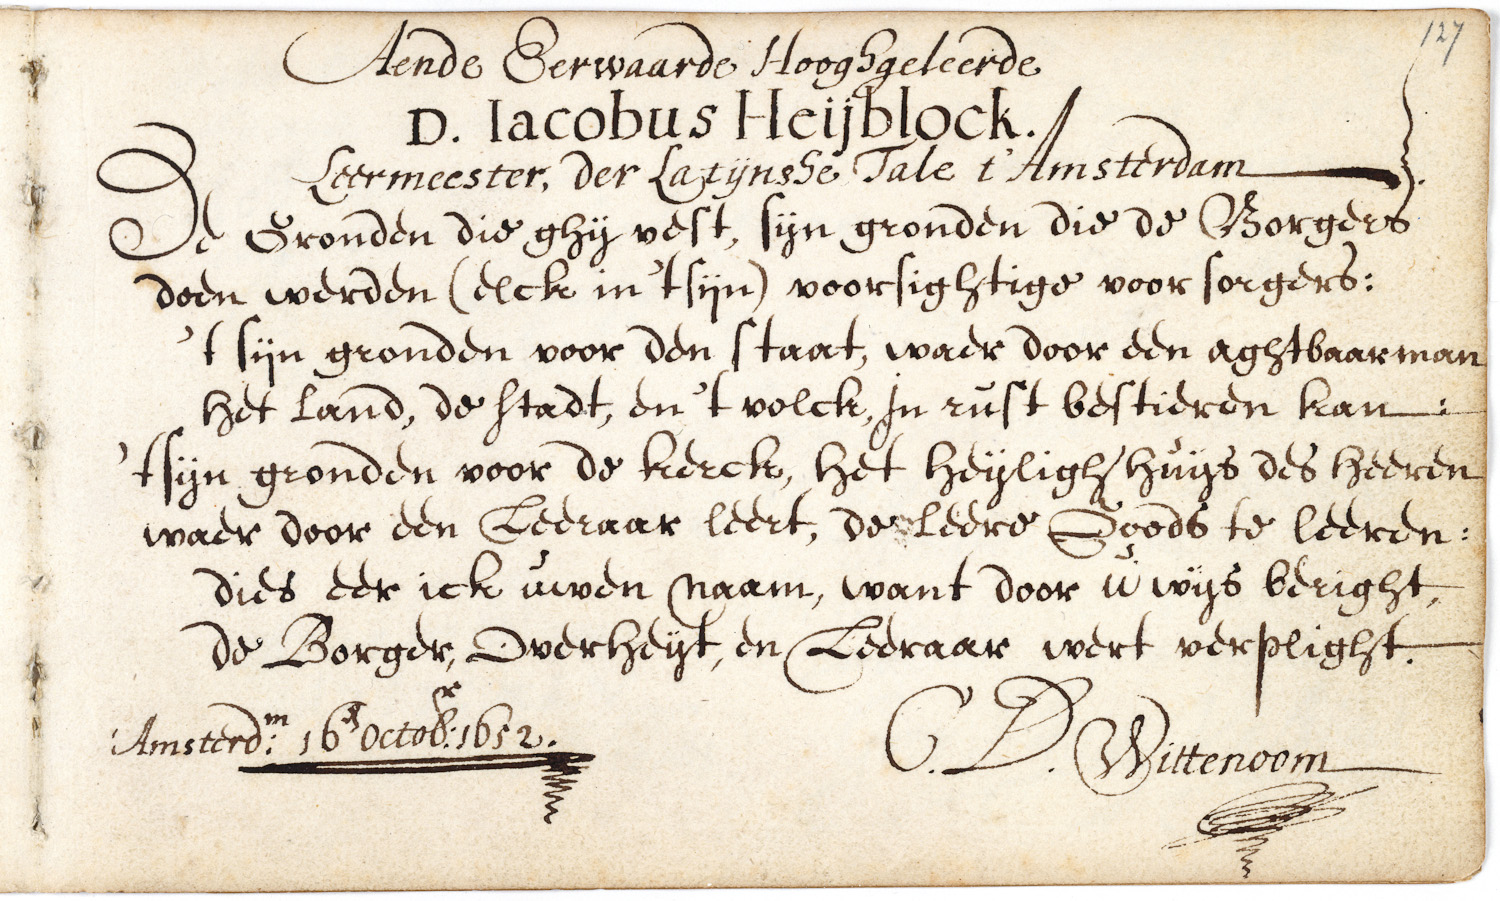 127
Aende Eerwaarde Hooghgeleerde
D. Iacobus Heijblock.
Leermeester, der Latijnshe Tale t'Amsterdam
De Gronden die ghij vest, sijn gronden die de Borgers
doen werden (elck in 't sijn) voorsightige voor sorgers:
't sijn gronden voor den staat, waer door een aghtbaar man
het land, de stadt, en 't volck, In rust bestieren kan:
't sijn gronden voor de kerck, het heijligh huijs des heeren
waer door een Leeraar leert, de leere Goods te leeren:
dies eer ick uwen naam, want door u wijs beright,
de Borger, Overheijt, en Leeraar wert verplight.
Amsterd:m 16 Octob:r 1652.
C. D. Wittenoom